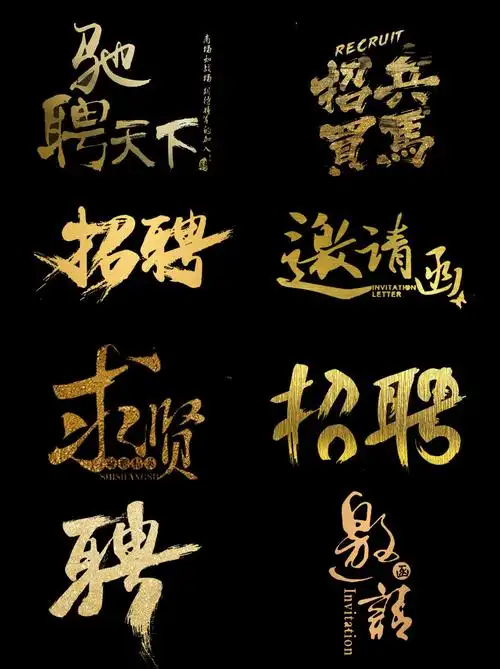 驰
聘天下
RECRUIT
招兵
買馬
招聘
邀请函
INVITATION
LETTER
求贤
SHISHANGSH
招聘
聘
邀
函
請
Invitation